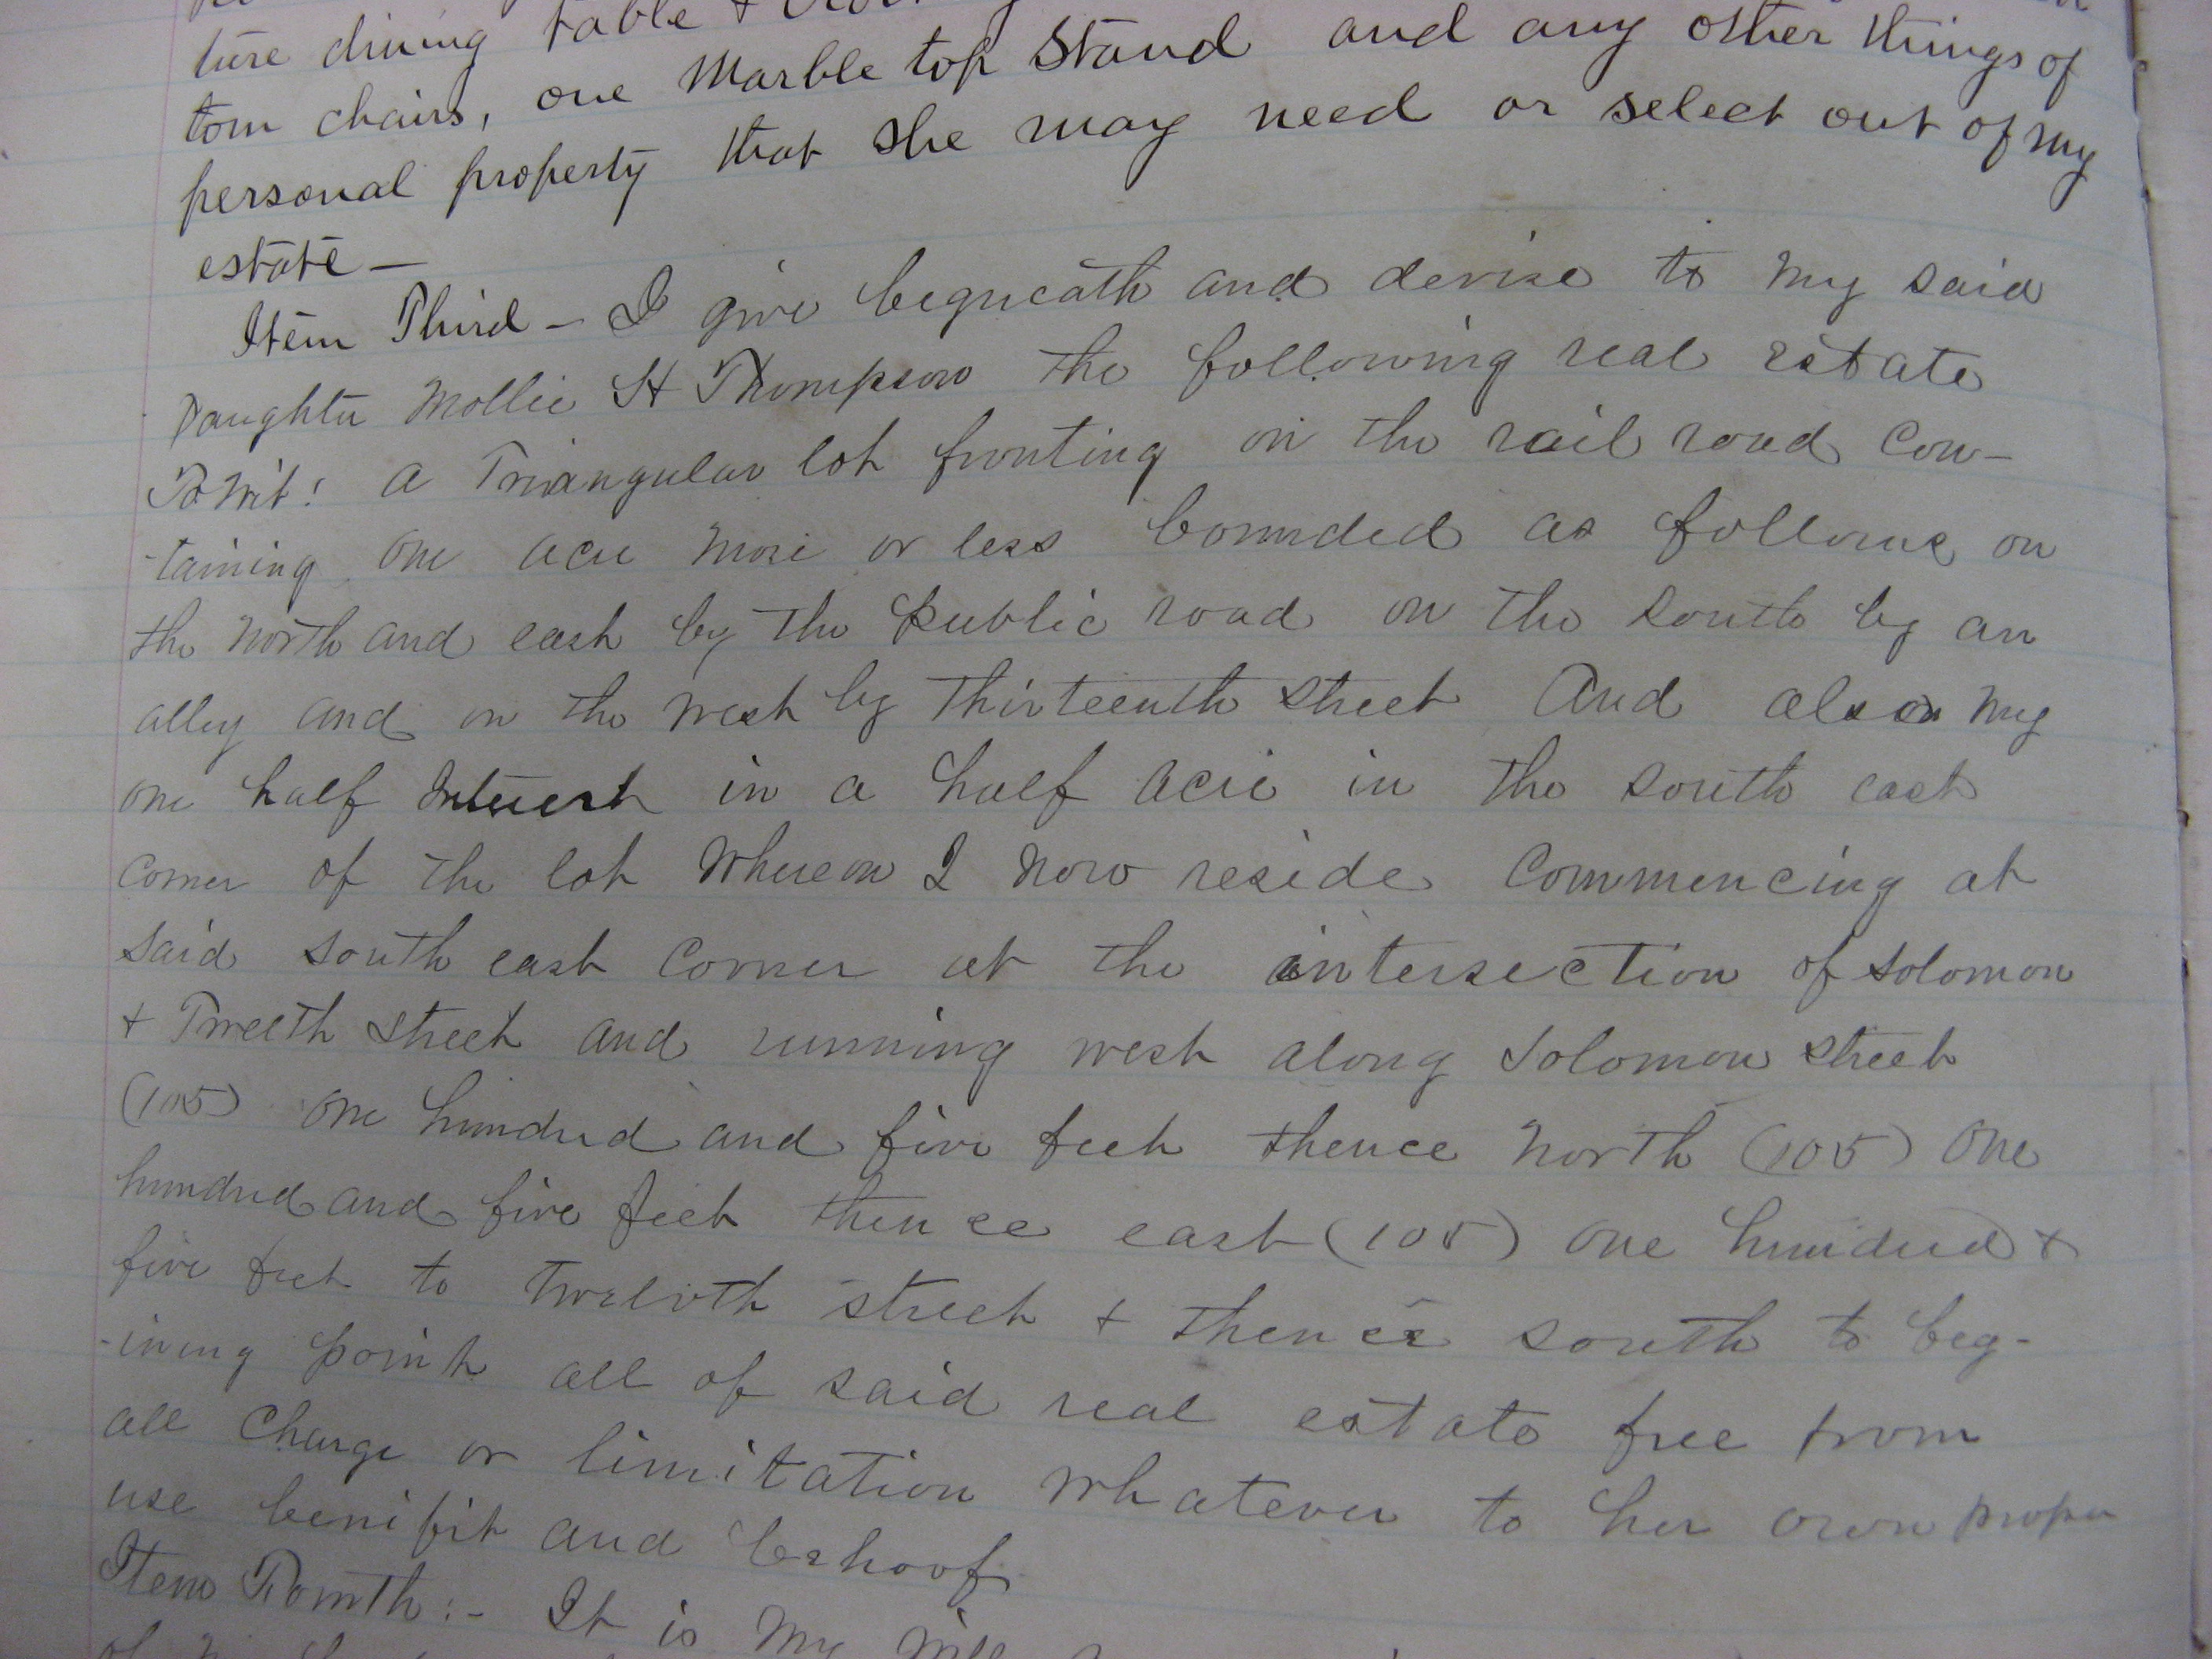 ture dining table +
tom chairs, one Marble top Stand and any other things of
personal property that she may need or select out of my
estate —
Item Third — I give bequeath and devise to my said
Daughter Mollie H Thompson the following real estate
To Wit! a Triangular lot fronting on the rail road Con-
-taining one acre more or less bounded as follows on
the North and east by the public road on the South by an
alley and on the west by Thirteenth Street And also my
one half Interest in a half acre in the South east
Corner of the lot Whereon I now reside Commencing at
said South east Corner at the intersection of Solomon
+ Twelth Street and running west along Solomon Street
(105) One hundred and five feet thence North (105) One
hundred and five feet thence east (105) One hundred +
five feet to Twelvth Street + thence south to beg-
-ining point all of said real estate free from
all Charge or limitation Whatever to her own proper
use benifit and behoof
Item Fourth :- It is my will